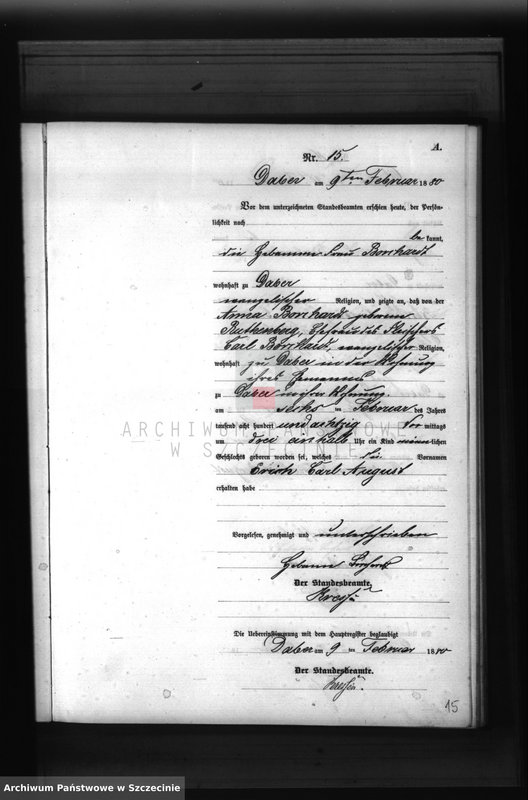 A.
Nr. 15.
Daber am 9ten Februar 1880
Vor dem unterzeichneten Standesbeamten erschien heute, der Persön-
lichkeit nach
be kannt,
die Hebamme Frau Borchardt
wohnhaft zu Daber
evangelischer Religion, und zeigte an, daß von der
Anna Borchard geborene
Ruthenberg, Ehefrau des Fleischers
Carl Borchard, evangelischer Religion,
wohnhaft zu Daber in der Wohnung
ihres Ehemannes
zu Daber in ihrer Wohnung.
am sechs ten Februar des Jahres
tausend acht hundert und achtzig Vor mittags
um drei ein halb Uhr ein Kind männ lichen
Geschlechts geboren worden sei, welches die Vornamen
Erich Carl August
erhalten habe
Vorgelesen, genehmigt und unterschrieben
Der Standesbeamte.
Die Uebereinstimmung mit dem Hauptregister beglaubigt
Daber am 9 ten Februar 1880
Der Standesbeamte.
15
ARCHIWUM PAŃSTWOWE
W SZCZECINIE
Archiwum Państwowe w Szczecinie